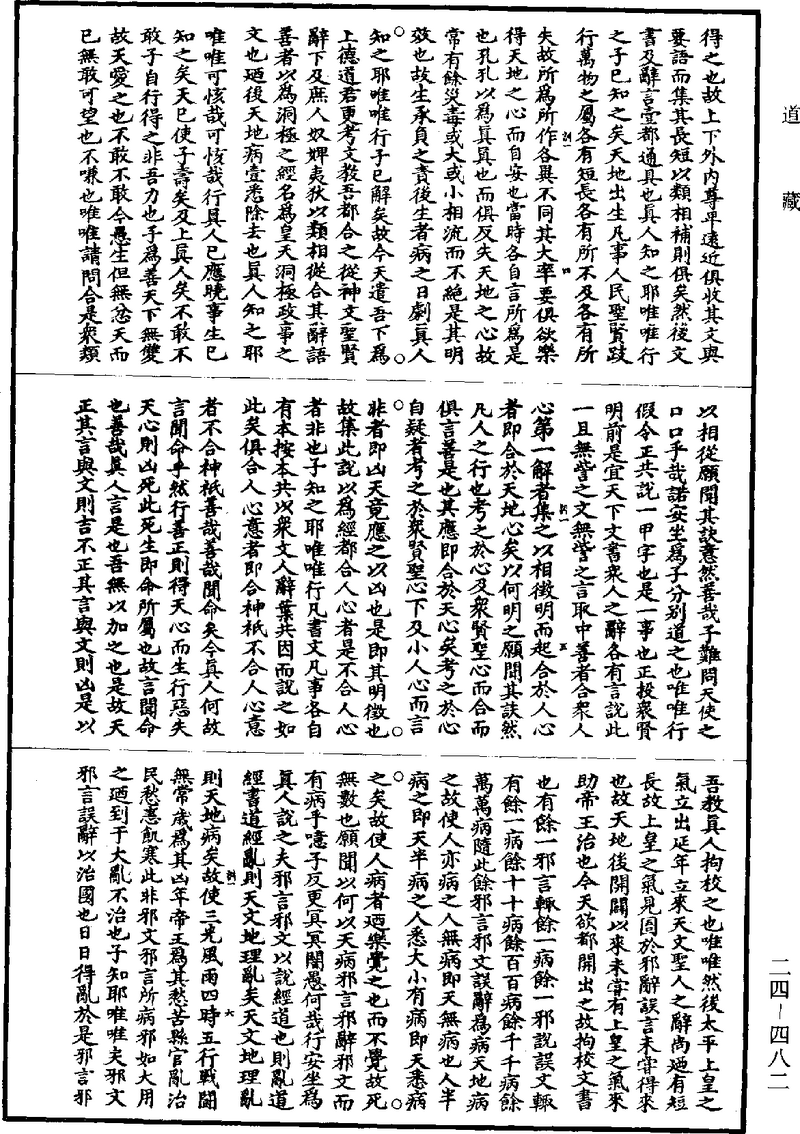 道藏
得之也故上下外内尊卑遠近俱收其文與
要語而集其長短以類相補則俱矣然後文
書及辭言壹都通具也真人知之耶唯唯行
之子已知之矣天地出生凡事人民聖賢跂
行萬物之屬各有短長各有所不及各有所
失故所為所作各異不同其大率要俱欲樂
得天地之心而自安也當時各自言所為是
也孔孔以為真真也而俱反失天地之心故
常有餘災毒或大或小相流而不絶是其明
效也故生承負之責後生者病之日劇真人
知之耶唯唯行子已解矣故今天遣吾下為
上德道君更考文教吾都合之從神文聖賢
辭下及庶人奴婢夷狄以類相從合其辭語
善者以為洞極之經名為皇天洞極政事之
文也廼後天地病壹悉除去也真人知之耶
唯唯可怪哉可怪哉行真人已應曉事生已
知之矣天已使子壽矣及上真人矣不敢不
敢子自行得之非吾力也子為善天下無雙
故天愛之也不敢不敢今愚生但無忿天而
已無敢可望也不嗛也唯唯請問合是衆類
以相從願聞其訣意然善哉子難問天使之
口口乎哉諾安坐為子分别道之也唯唯行
假令正共説一甲字也是一事也正投衆賢
明前是宜天下文書衆人之辭各有言説此
一且無訾之文無訾之言取中善者合衆人
心第一解者集之以相徵明而起合於人心
者即合於天地心矣以何明之願聞其訣然
凡人之行也考之於心及衆賢聖心而合而
俱言善是也其應即合於天心矣考之於心
自疑者考之於衆賢聖心下及小人心而言
非者即凶天竟應之以凶也是即其明徵也
故集此説以為經都合人心者是不合人心
者非也子知之耶唯唯行凡書文凡事各自
有本按本共以衆文人辭葉共因而説之如
此矣俱合人心意者即合神祇不合人心意
者不合神祇善哉善哉聞命矣今真人何故
言聞命乎然行善正則得天心而生行惡失
天心則凶死此死生即命所屬也故言聞命
也善哉真人言是也吾無以加之也是故天
正其言與文則吉不正其言與文則凶是以
吾教真人拘校之也唯唯然後太平上皇之
氣立出延年立來天文聖人之辭尚廼有短
長故上皇之氣見圄於邪辭誤言未甞得來
也故天地後開闢以來未甞有上皇之氣來
助帝王治也今天欲都開出之故拘校文書
也有餘一邪言輒餘一病餘一邪説誤文輒
有餘一病餘十十病餘百百病餘千千病餘
萬萬病隨此餘邪言邪文誤辭為病天地病
之故使人亦病之人無病即天無病也人半
病之即天半病之人悉大小有病即天悉病
之矣故使人病者廼樂覺之也而不覺故死
無數也願聞以何以天病邪言邪辭邪文而
有病乎噫子反更冥冥闇愚何哉行安坐為
真人説之夫邪言邪文以説經道也則亂道
經書道經亂則天文地理亂矣天文地理亂
則天地病矣故使三光風雨四時五行戰鬪
無常歳為其凶年帝王為其愁苦縣官亂治
民愁恚飢寒此非邪文邪言所病邪如大用
之廼到于大亂不治也子知耶唯唯夫邪文
邪言誤辭以治國也日日得亂於是邪言邪
二四-四八二